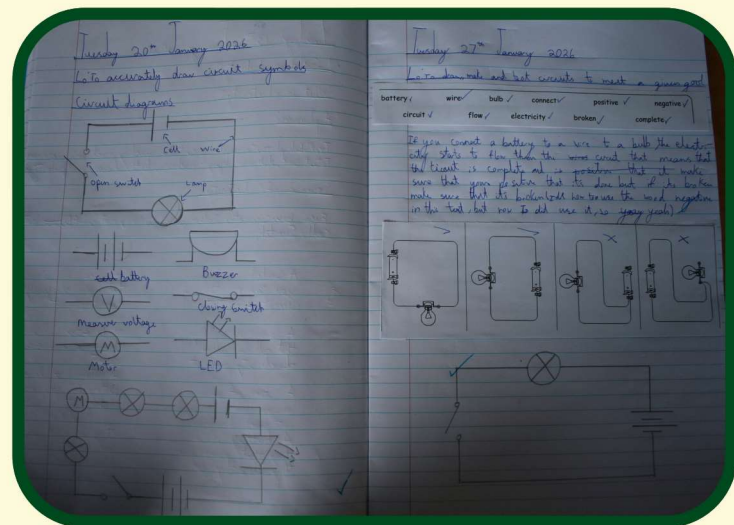 Tuesday 20th January 2026
Lo: To accurately draw circuit symbols
Circuit diagrams
Cell
wire
open switch
Lamp
battery
Buzzer
V
closing switch
Measure voltage
M
Motor
LED
M
Tuesday 27th January 2026
Lo: To draw, make and
circuits to meet a given
battery wire bulb connect positive negative
circuit flow electricity broken complete
If you connect a battery to a wire to a bulb the electri-
city starts to flow
circuit that means that
the circuit is complete
positive that
make
sure that your positive that is done but if
broken
make sure that its broken
use the word negative
in the text, but now I did use it, so